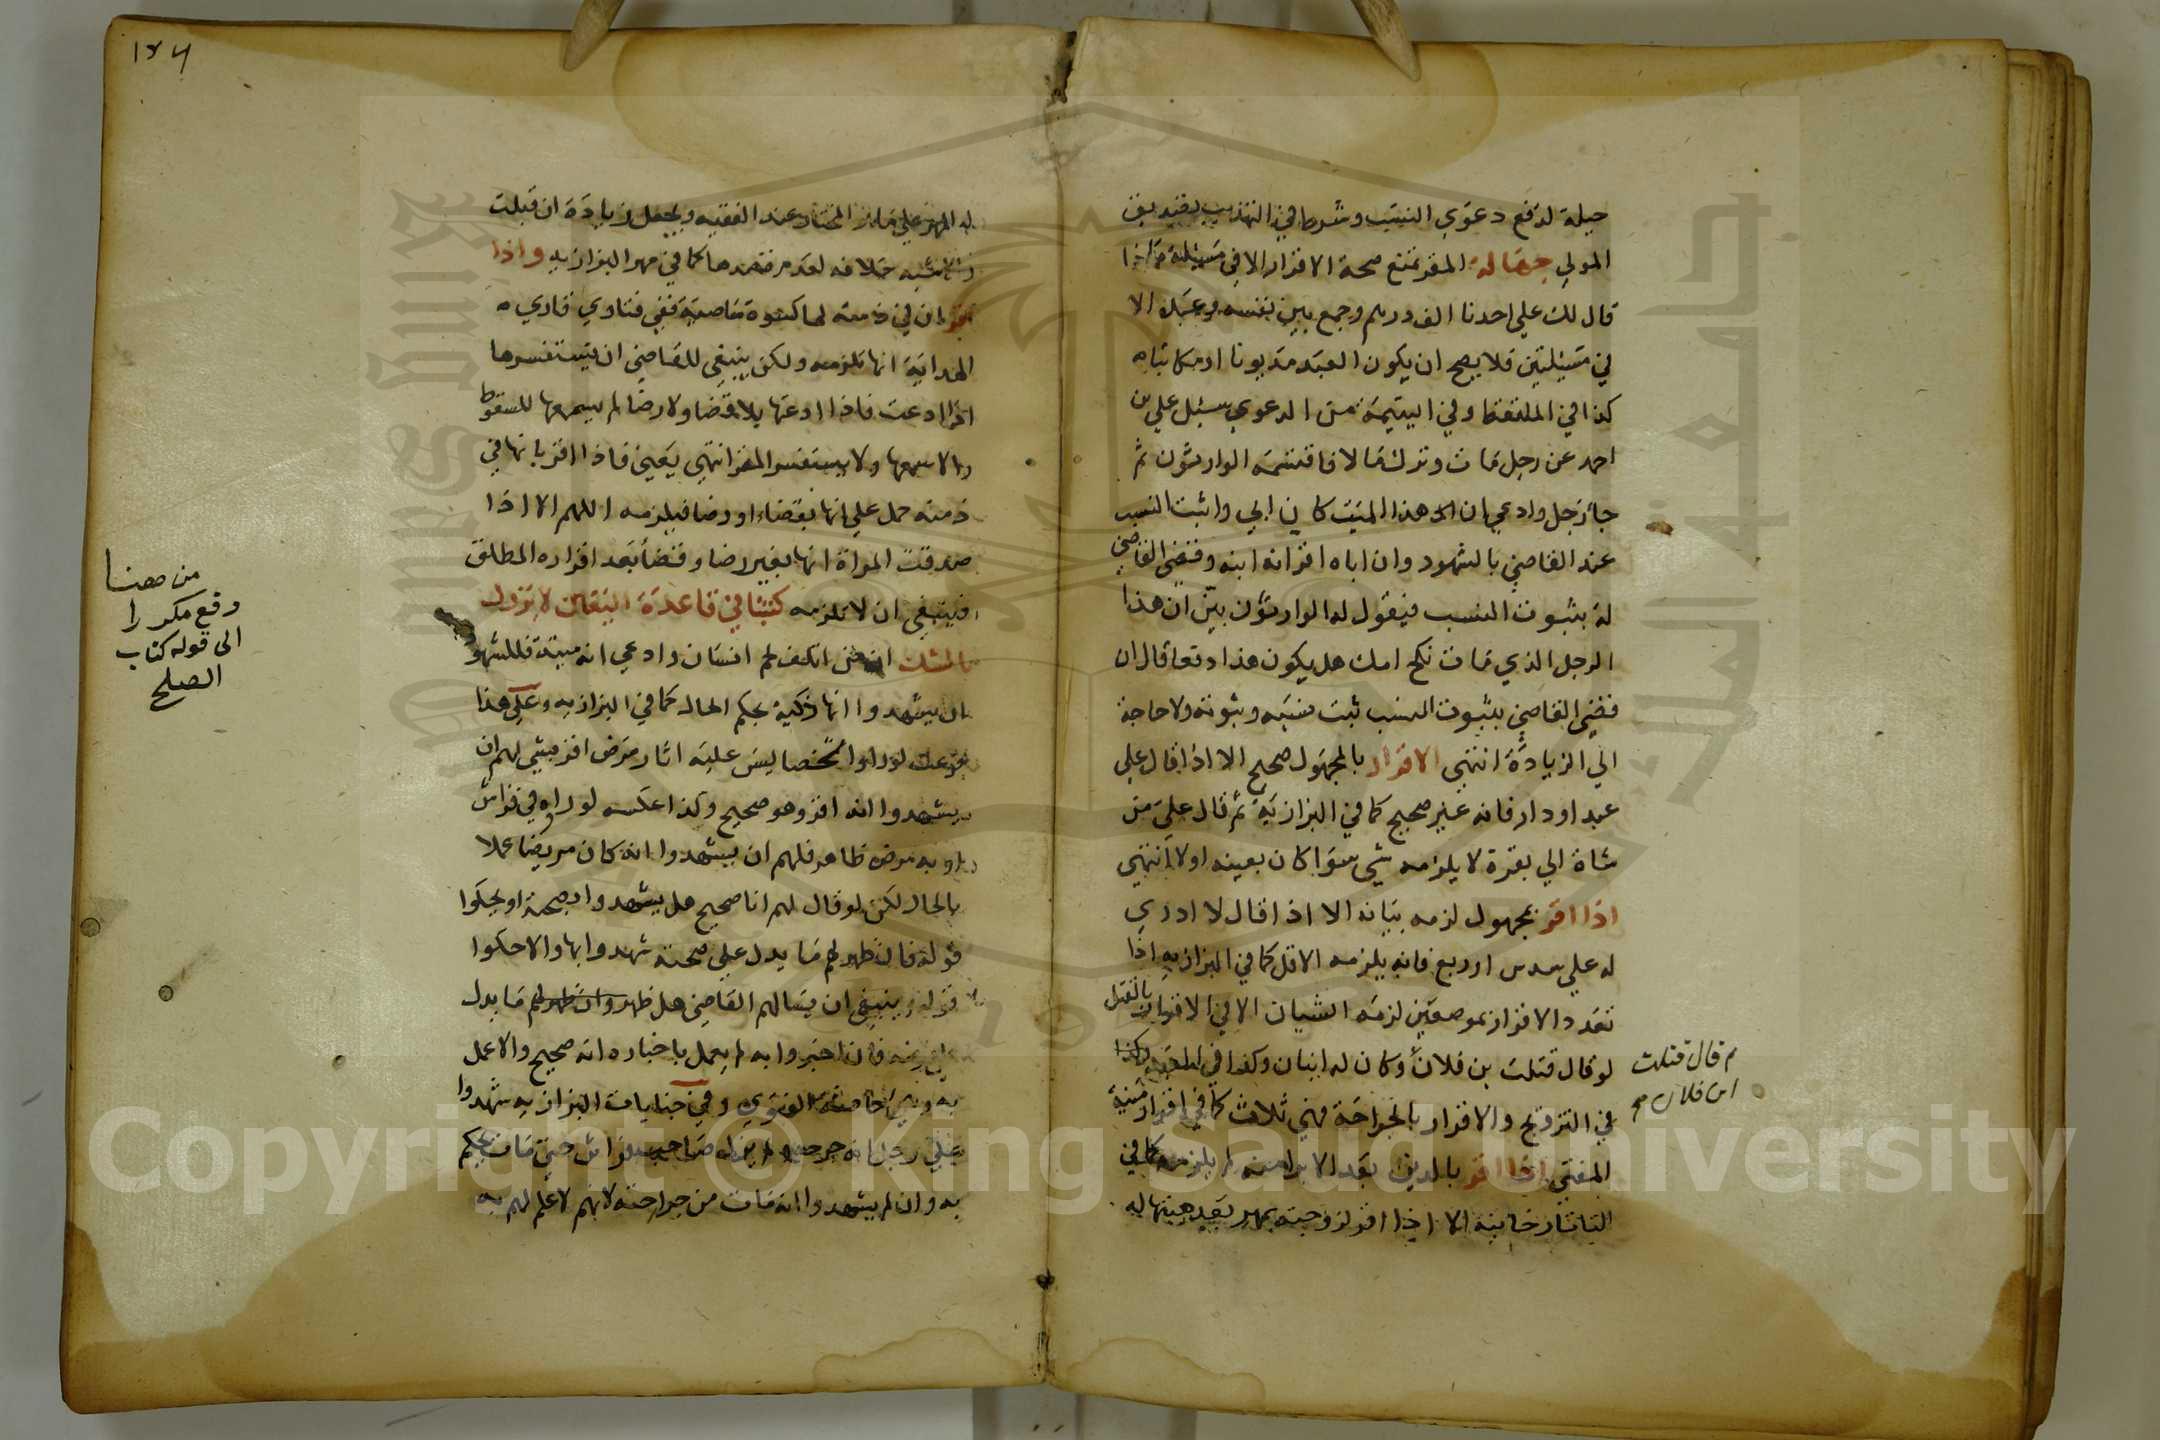 حيلة لدفع دعوي النسب وشرط في التهذيب تصديق
المولي جهالة المقر تمنع صحة الاقرار الا في مسئلة ما اذا
قال لك علي احدنا الف درهم وجمع بين نفسه وعبده الا
في مسئلتين فلا يصح ان يكون العبد مديونا او مكاتبا ه
كذا في الملتقط وفي اليتيمة من الدعوي سئل علي بن
احمد عن رجل مات وترك مالا فاقتسمه الوارثون ثم
جا رجل وادعي ان هذا الميت كان ابي واثبت النسب
عند القاضي بالشهود وان اباه اقر انه ابنه وقضي القاضي
له بثبوت النسب فيقول له الوارثون بين ان هذا
الرجل الذي مات نكح امك هل يكون هذا دفعا قال ان
قضي القاضي بثبوت النسب ثبت نسبه وبنوته ولا حاجة
الي الزيادة انتهي الاقرار بالمجهول صحيح الا اذا قال علي
عبد او دار فانه غير صحيح كما في البزازية ثم قال علي من
شاة الي بقرة لا يلزمه شي سوا كان بعينه اولا انتهي
اذا اقر بمجهول لزمه بيانه الا اذا قال لا ادري
له علي سدس او ربع فانه يلزمه الاقل كما في البزازيه اذا
تعدد الاقرار بموضعين لزمه الشيان الا في الاقرار بالقتل
لو قال قتلت بن فلان وكان له ابنان وكذا في العبد وكذا
في التزويج والاقرار بالجراحة فهي ثلاث كما في اقرار منية
المفتي اذا اقر بالدين بعد الابرا منه لم يلزمه كما في
التاتارخانية الا اذا اقر لزوجته بمهر بعد هبتها له
ثم قال قتلت
ابن فلان
١٣٦
له المهر علي ما هو المختار عند الفقيه ويجعل زيادة ان قبلت
والاشبه خلافه لعدم قصدها كما في مهر البزازيه واذا
اقر ان في ذمته لها كسوة ماضية ففي فتاوي قاري ه
الهداية انها تلزمه ولكن ينبغي للقاضي ان يستفسرها
اذا ادعت فاذا ادعتها بلا قضا ولا رضا لم يسمعها للسقوط
والا سمعها ولا يستفسر المقر انتهي يعني فاذا اقر بانها في
ذمته حمل علي انها بقضاء او رضا فيلزمه اللهم الا اذا
صدقت المراة انها بغير رضا وقضا بعد اقراره المطلق
فينبغي ان لا تلزمه كتبنا في قاعدة اليقين لا يزول
بالشك انكف لحم انسان وادعي انه ميتة فللشهود
ان يشهدوا انها ذكية بحكم الحال كما في البزازيه وعلي هذا
فرعت لو راوا شخصا ليس عليه اثار مرض اقر بشي لهم ان
يشهدوا انه اقر وهو صحيح وكذا عكسه لو راوه في فراش
او به مرض ظاهر فلهم ان يشهدوا انه كان مريضا عملا
بالحال لكن لو قال لهم انا صحيح هل يشهدوا بصحته او يحكوا
قوله فان ظهر لهم ما يدل علي صحته شهدوا بها والا حكوا
قوله وينبغي ان يسالهم القاضي هل ظهر لهم ما يدل
علي مرضه فان اخبروا به لم يعمل باخباره انه صحيح والا عمل
به وهي حادثة الفتوي وفي جنايات البزازيه شهدوا
علي رجل انه جرحه ولم يزل صاحب فراش حتي مات يحكم
به وان لم يشهدوا انه مات من جراحته لانهم لا علم لهم به
من ههنا
وقع مكررا
الى قوله كتاب
الصلح
Copyright © King Saud University